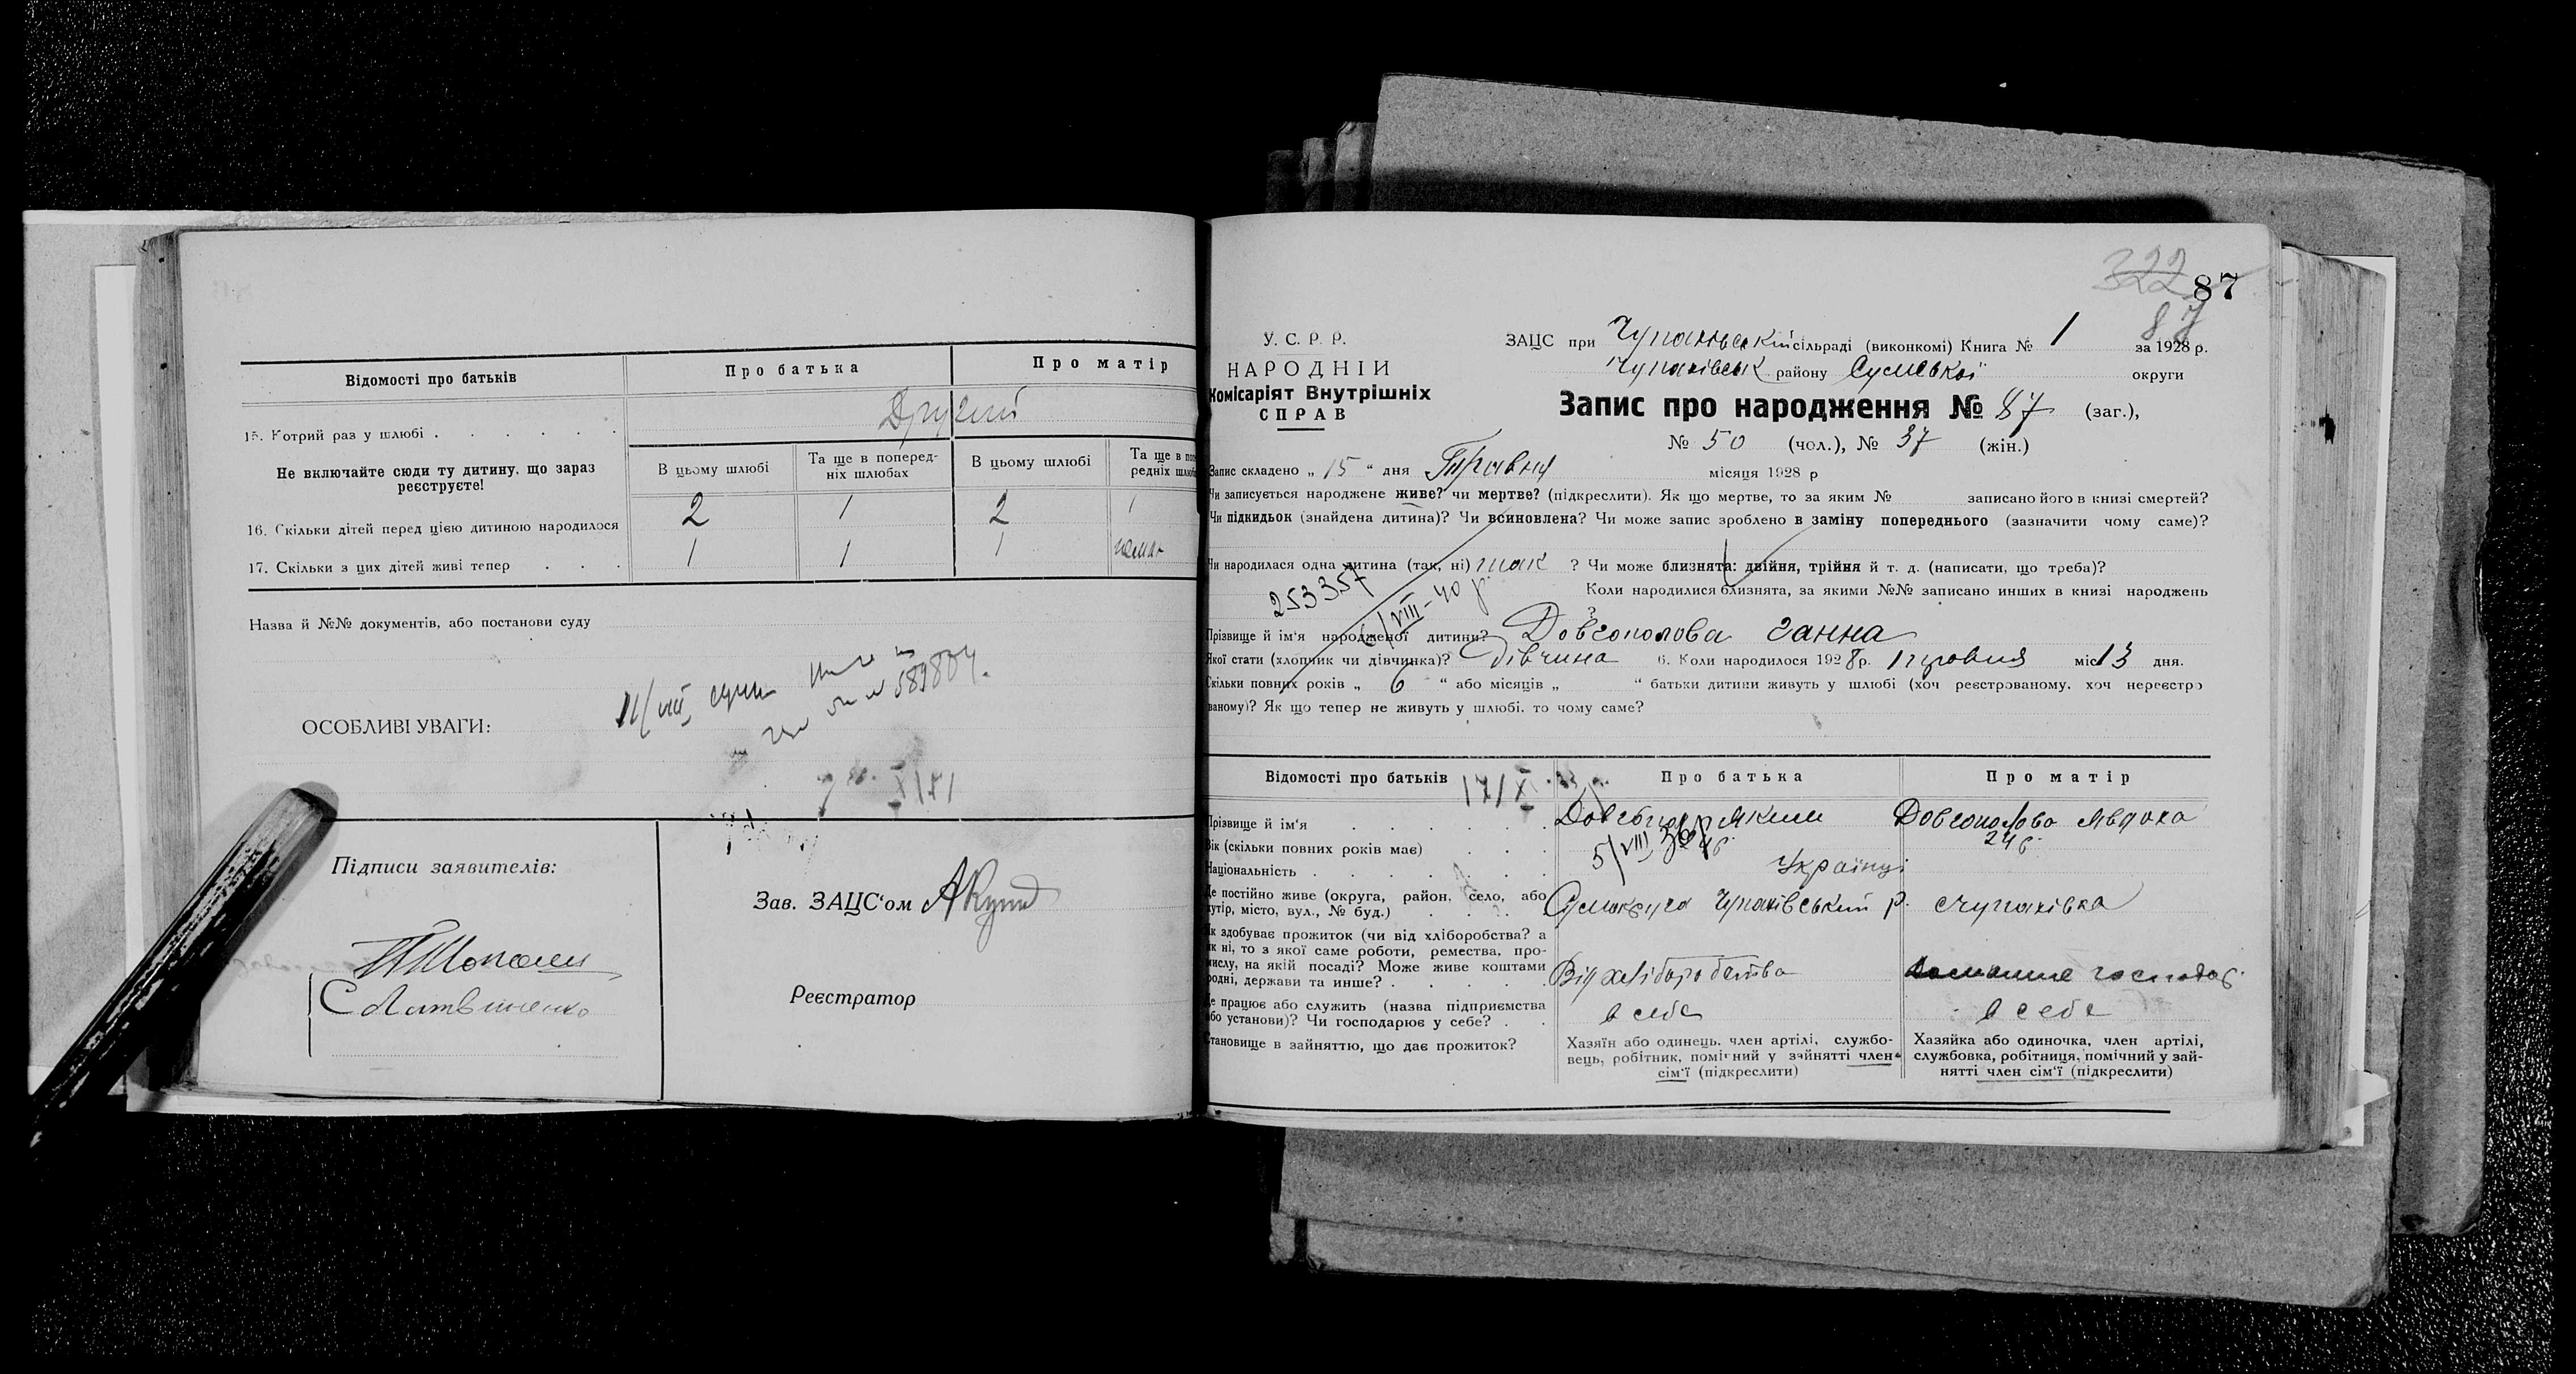 Відомості про батьків
Про батька
Про матір
15. Котрий раз у шлюбі
Другий
Не включайте сюди ту дитину, що зараз реєструєте!
В цьому шлюбі
Та ще в поперед-
ніх шлюбах
В цьому шлюбі
Та ще в попе
редніх шлюб
16. Скільки дітей перед цією дитиною народилося 2 1 2 1
17. Скільки з цих дітей живі тепер 1 1 1
Назва й №№ документів, або постанови суду
ОСОБЛИВІ УВАГИ:
Підписи заявителів:
С Литвиненко
Зав. ЗАЦС‘ом
Реєстратор
322
87
87
У. С. Р. Р.
НАРОДНІЙ
Комісаріят Внутрішніх
СПРАВ
ЗАЦС при Чупахівській сільраді (виконкомі) Книга № 1 за 1928 р.
Чупахівськ району Сумської округи
Запис про народження № 87 (заг.),
№ 50 (чол.), № 37 (жін.)
Запис складено „ 15 “ дня Травня місяця 1928 р
Чи записується народжене живе? чи мертве? (підкреслити). Як що мертве, то за яким № записано його в книзі смертей?
Чи підкидьок (знайдена дитина)? Чи всиновлена? Чи може запис зроблено в заміну попереднього (зазначити чому саме)?
Чи народилася одна дитина (так, ні) так ? Чи може близнята: двійня, трійня й т. д. (написати, що треба)?
253357
6/VIII-40 р
Коли народилися близнята, за якими №№ записано инших в книзі народжень
Прізвище й ім‘я народженої дитини? Довгополова Ганна
Якої стати (хлопчик чи дівчинка)? дівчина 6. Коли народилося 1928 р. травня міс 13 дня.
Скільки повних років „ 6 “ або місяців „ “ батьки дитини живуть у шлюбі (хоч реєстрованому, хоч нереєстро
ваному)? Як що тепер не живуть у шлюбі, то чому саме?
Відомості про батьків
Про батька
Про матір
Прізвище й ім‘я
Довгопол Яким
Довгополова Явдоха
Вік (скільки повних років має)
5/VIII
24 р.
Національність
Українці
Де постійно живе (округа, район, село, або
хутір, місто, вул., № буд.)
Сумокруга Чупахівський р. с Чупахівка
Як здобуває прожиток (чи від хліборобства? а
як ні, то з якої саме роботи, ремества, про-
мислу, на якій посаді? Може живе коштами
родні, держави та инше?
Від хліборобства
домашнє господар.
Де працює або служить (назва підприємства
або установи)? Чи господарює у себе?
в себе
в себе
Становище в зайняттю, що дає прожиток?
Хазяїн або одинець, член артілі, службо-
вець, робітник, помічний у зайнятті член
сім‘ї (підкреслити)
Хазяйка або одиночка, член артілі,
службовка, робітниця, помічний у зай-
нятті член сім‘ї (підкреслити)